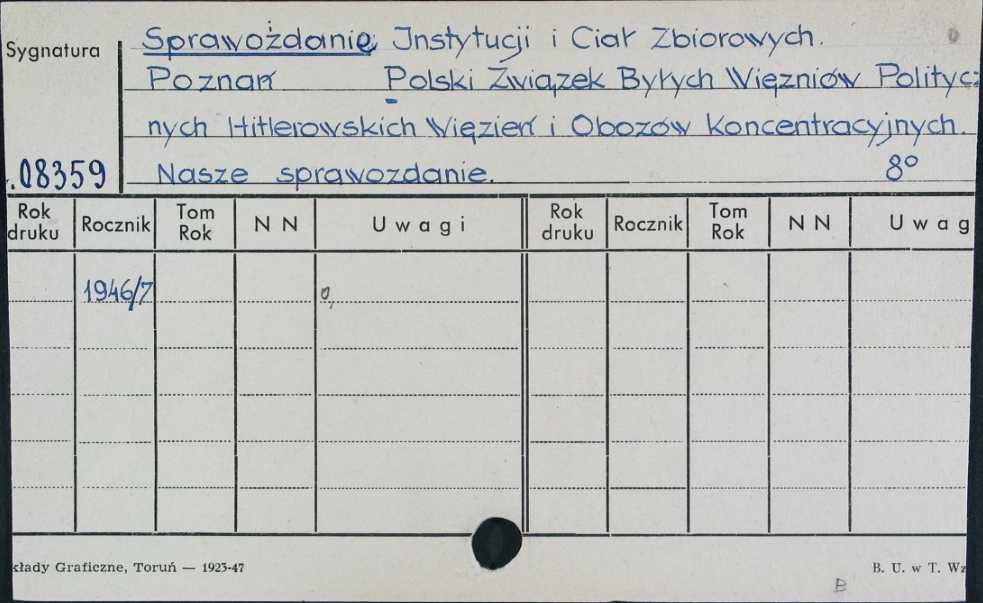 Sygnatura
Sprawozdanie Instytucji i Ciał Zbiorowych.
Poznań Polski Związek Byłych Więzniów Politycz
nych Hitlerowskich Więzień i Obozów Koncentracyjnych.
.08359 Nasze sprawozdanie. 8°
Rok druku Rocznik Tom Rok N N Uwagi Rok druku Rocznik Tom Rok N N Uwag
1946/7 0,
kłady Graficzne, Toruń — 1923-47 B. U. w T. Wz
B